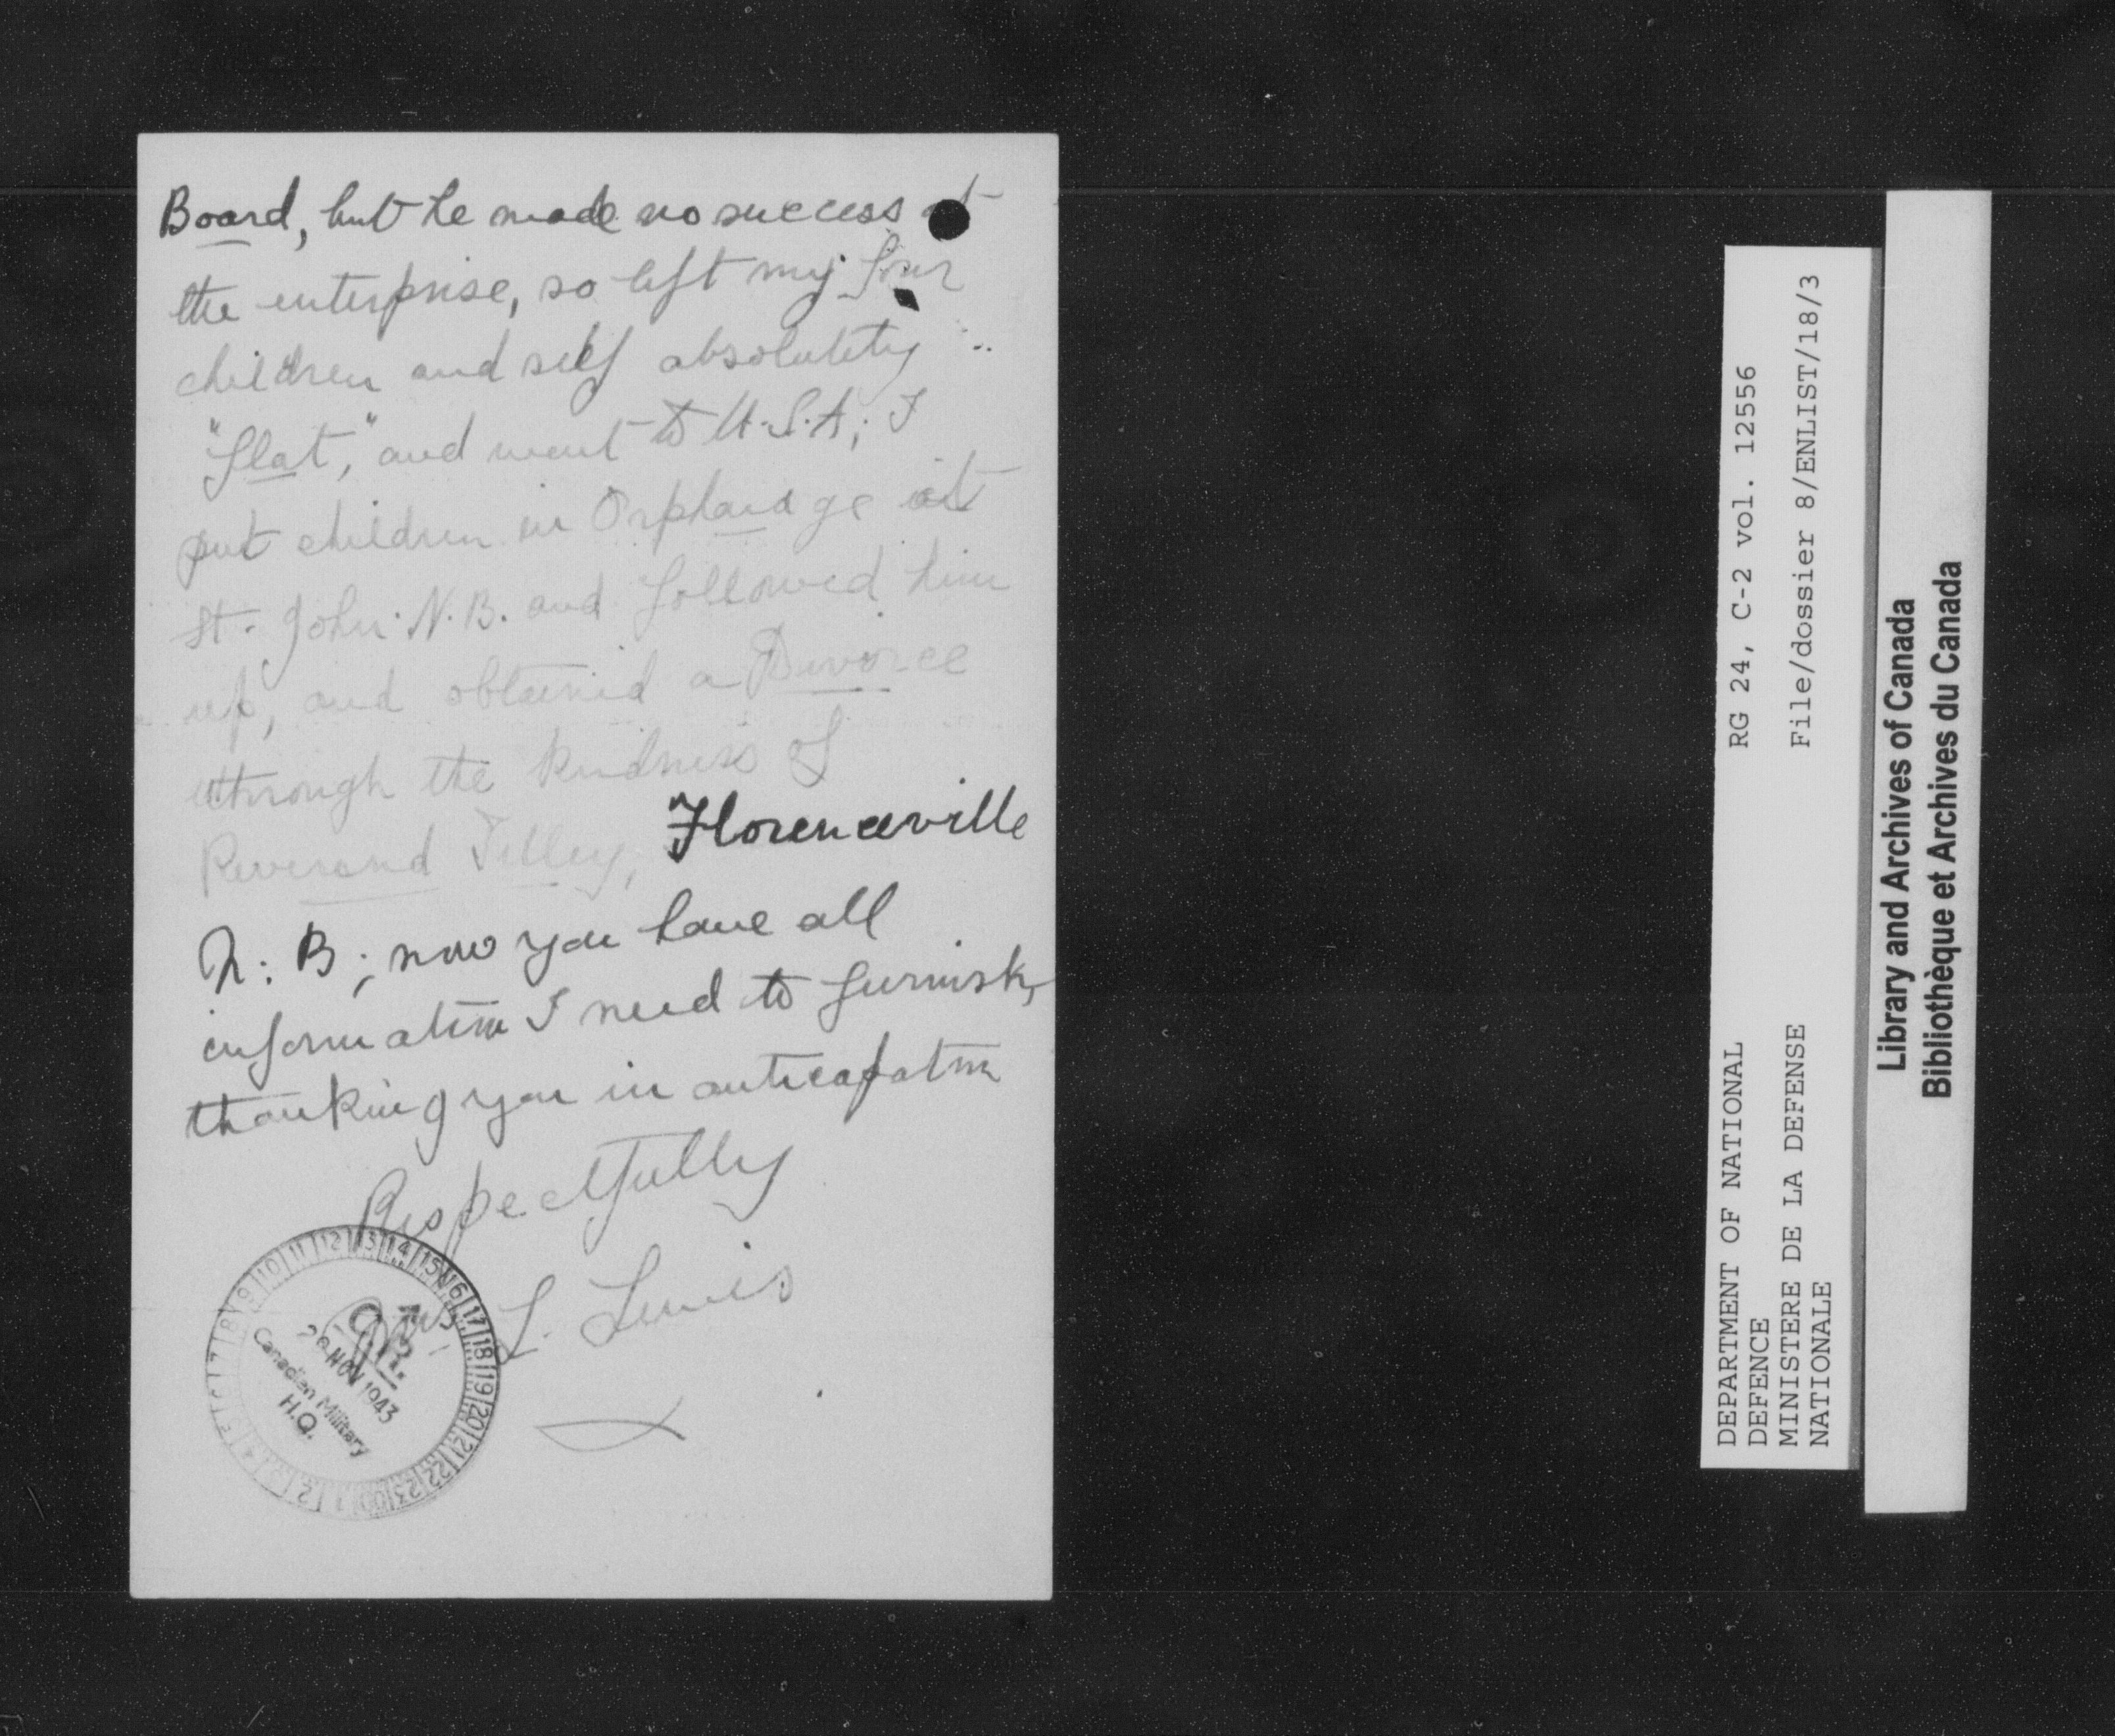 Board, but he made no success at
the enterprise, so left my four
children and self absolutety
"flat," and went to U.S.A; I
put children in Orphanage at
St. John. N.B. and followed him
up, and obtained a Divorce
through the kindness of
Reverend Tilley, Florenceville
N. B; now you have all
information I need to furnish,
thanking you in anticapation
Respectfully
Mrs. L. Lewis
28 NOV 1943
Canadian Military
H.Q.
1 2 3 4 5 6 7 8 9 10 11 12 13 14 15 16 17 18 19 20 21 22 23 00
DEPARTMENT OF NATIONAL
DEFENCE
MINISTERE DE LA DEFENSE
NATIONALE
RG 24, C-2 vol. 12556
File/dossier 8/ENLIST/18/3
Library and Archives of Canada
Bibliothèque et Archives du Canada